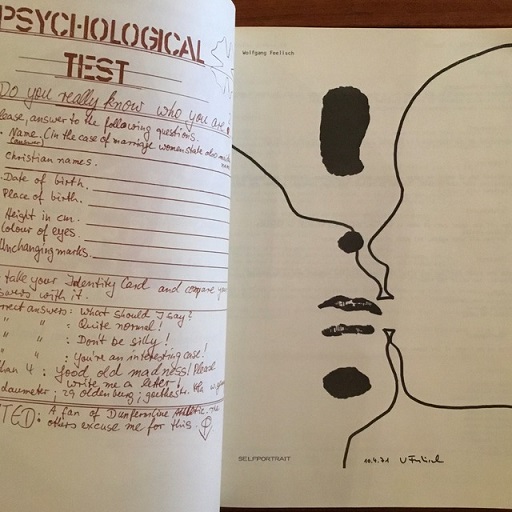 PSYCHOLOGICAL
TEST
Do you really know who you are?
lease, answer to the following questions.
Name. (in the case of marriage women state also
christian names.
Date of birth.
Place of birth.
Height in cm.
Colour of eyes.
Unchanging marks.
take your Identity Card and compare your
swers with it.
rrect answers: What should I say?
" " : Quite normal!
" " : Don't be silly!
" " : You're an interesting case!
han 4 : Good old madness! Please
write me a letter!
daumeter; 29 oldenburg;
TED: A fan of Dunfermline Athletic.
others excuse me for this.
Wolfgang Feelisch
SELFPORTRAIT
10.4.71